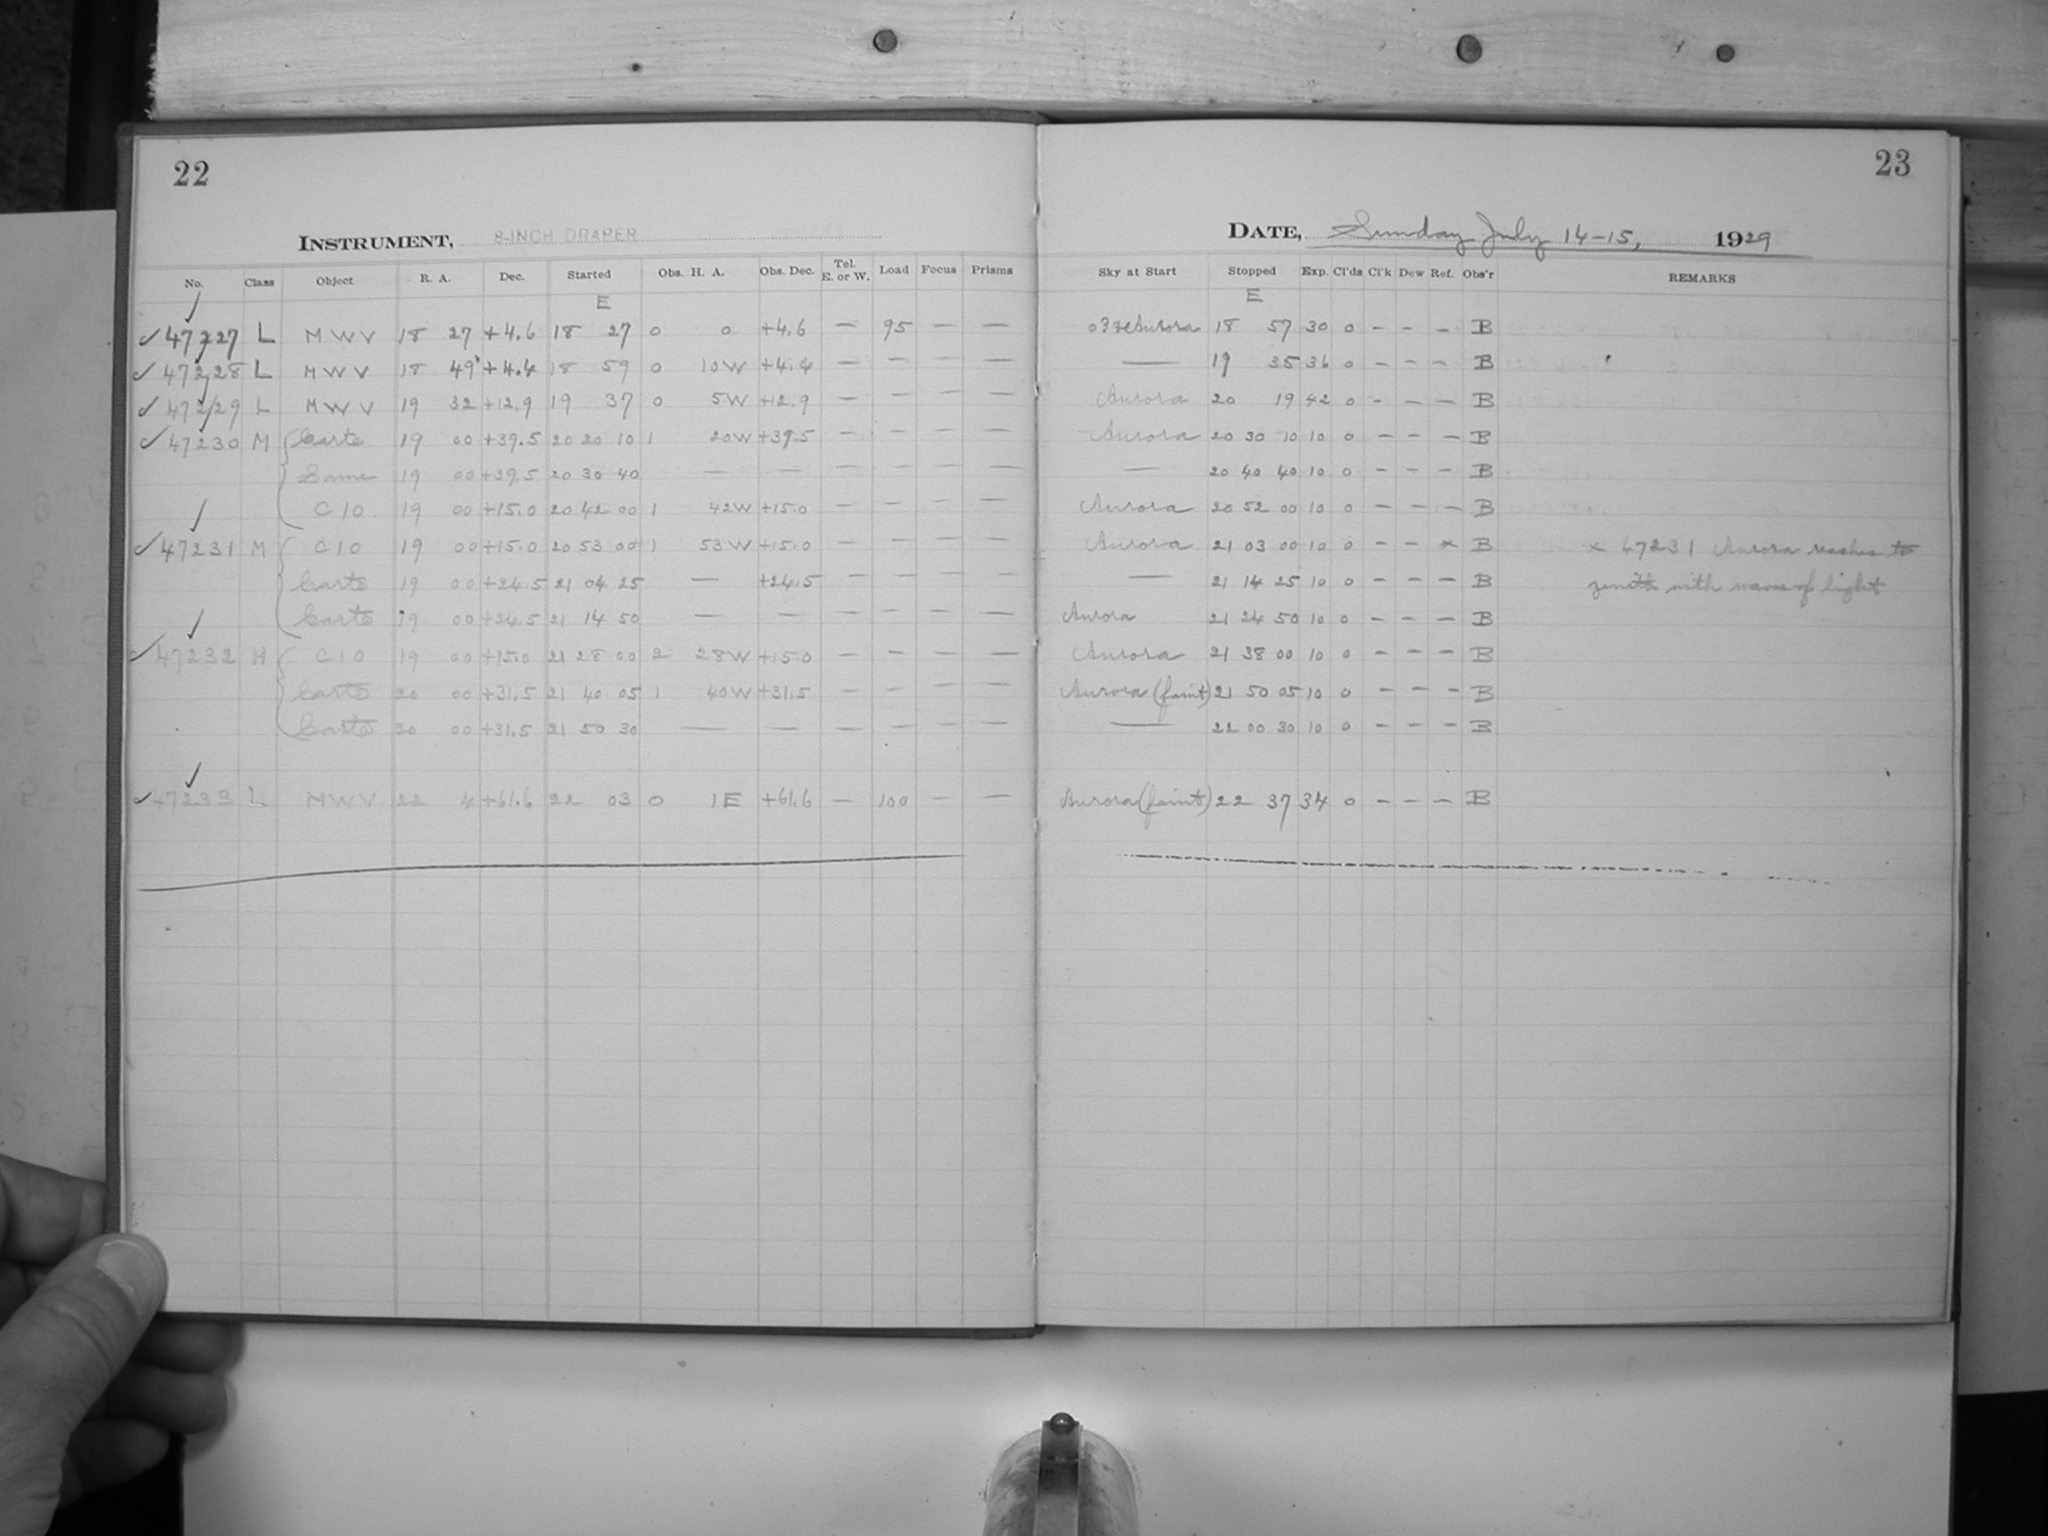 22
INSTRUMENT, 8-INCH DRAPER
No. Class Object R. A. Dec. Started Obs. H. A. Obs. Dec. Tel. E. or W. Load Focus Prisms
E
47227 L MWV 18 27 +4.6 18 27 0 0 +4.6 — 95 — —
47228 L MWV 18 49 +4.4 18 59 0 10W +4.4 — — — —
47229 L MWV 19 32 +12.9 19 37 0 5W +12.9 — — — —
47230 M Carte 19 00 +39.5 20 20 10 1 20W +39.5 — — — —
Same 19 00 +39.5 20 30 40 — — — — — —
C10 19 00 +15.0 20 42 00 1 42W +15.0 — — — —
47231 M C10 19 00 +15.0 20 53 00 1 53W +15.0 — — — —
Carte 19 00 +24.5 21 04 25 — +24.5 — — — —
Carte 19 00 +24.5 21 14 50 — — — — — —
47232 M C10 19 00 +15.0 21 28 00 2 28W +15.0 — — — —
Carte 20 00 +31.5 21 40 05 1 40W +31.5 — — — —
Carte 20 00 +31.5 21 50 30 — — — — — —
47233 L MWV 22 4 +61.6 22 03 0 1E +61.6 — 100 — —
23
DATE, Sunday July 14-15, 1929
Sky at Start Stopped Exp. Cl'ds Cl'k Dew Ref. Obs'r REMARKS
E
Aurora 18 57 30 0 - - - B
— 19 35 36 0 - - - B
Aurora 20 19 42 0 - - - B
Aurora 20 30 10 10 0 - - - B
— 20 40 40 10 0 - - - B
Aurora 20 52 00 10 0 - - - B
Aurora 21 03 00 10 0 - - x B x 47231 Aurora reaches to
— 21 14 25 10 0 - - - B zenith with waves of light
Aurora 21 24 50 10 0 - - - B
Aurora 21 38 00 10 0 - - - B
Aurora (faint) 21 50 05 10 0 - - - B
— 22 00 30 10 0 - - - B
Aurora (faint) 22 37 34 0 - - - B